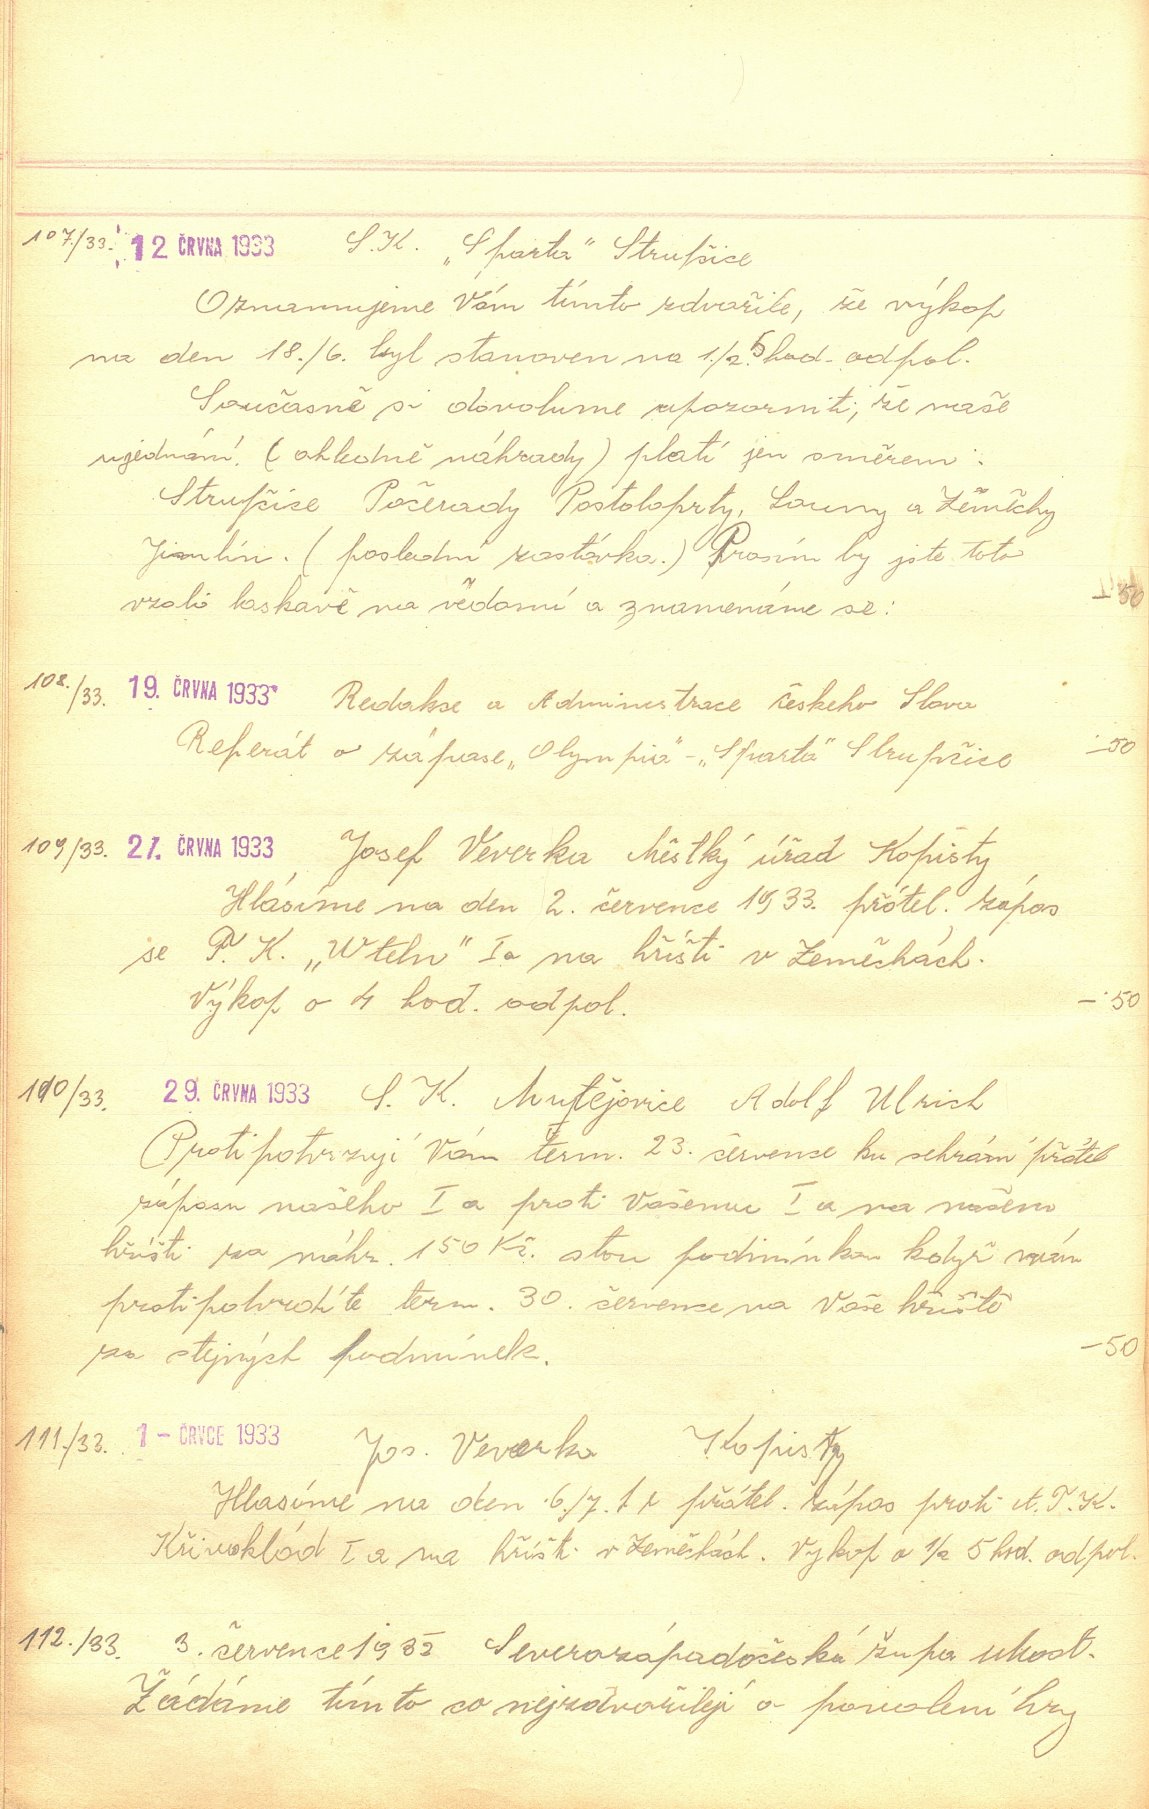 107./33. 12 ČRVNA 1933 S.K. „Sparta" Strupšice
Oznamujeme Vám tímto zdvořile, že výkop
na den 18./6. byl stanoven na 1./2.5 hod. odpol.
Současně si dovolume upozorniti, že naše
ujednání. (ohledně náhrady) platí jen směrem:
Strupšice Počerady Postoloprty, Louny a Zěměchy
Jimlín. (poslední zastávka.) Prosím by jste toto
vzali laskavě na vědomí a znamenáme se: 50
108./33. 19. ČRVNA 1933 Redakse a Administrace českeho Slova
Referát o zápase „Olympia" - „Sparta" Strupšice -50
109/33. 21. ČRVNA 1933 Josef Veverka Městký úřad Kopisty
Hlásíme na den 2. července 1933. přátel. zápas
se F. K. „Wteln" Ia na hřišti v Zeměchách.
Výkop o 4 hod. odpol. -·50
110/33. 29. ČRVNA 1933 S. K. Mutějovice Adolf Ulrich
Protipotvrzují Vám term. 23. července ku sehrání přátel
zápasu našeho I a proti Vašemu I a na našem
hřišti za náhr. 150 Kč. stou podmínkou když nám
protipotvrdíte term. 30. července na Vaše hřiště
za stejných podmínek. -50
111./33. 1 - ČRVCE 1933 Jos. Veverka Kopisty
Hlasíme na den 6./7. t r přátel. zápas proti A.F.K.
Křivoklád I a na hřišti v Zeměchách. Vykop o 1/2 5 hod. odpol.
112./33. 3. července 1933 Severozápadočeská župa Most.
Žádáme tímto co nejzdvořileji o povolení hry